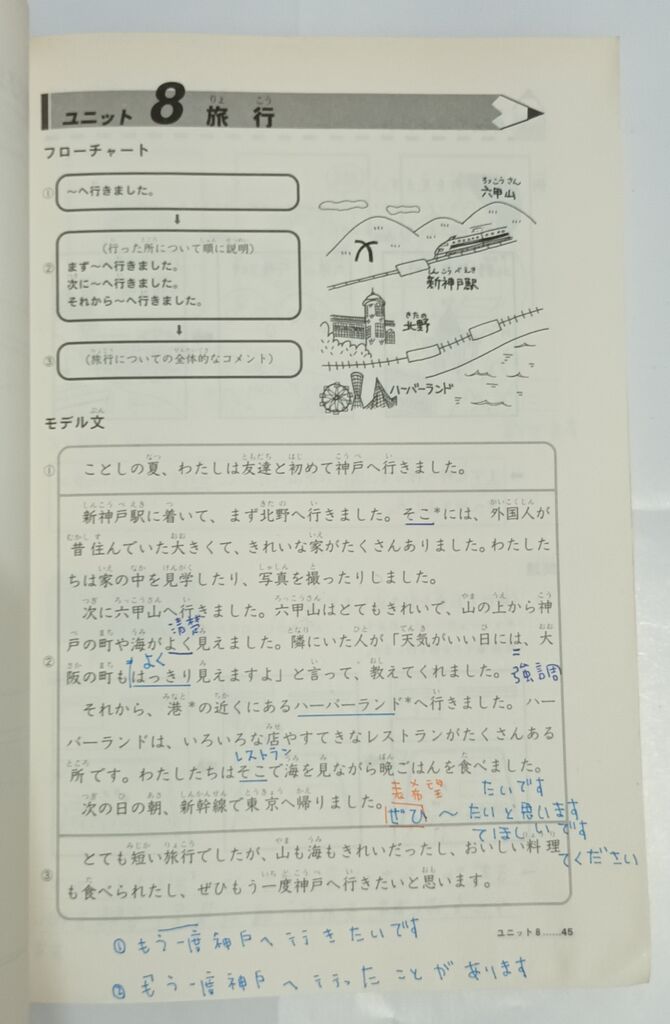 ユニット 8 旅行
フローチャート
① 〜へ行きました。
② （行った所について順に説明）
まず〜へ行きました。
次に〜へ行きました。
それから〜へ行きました。
③ （旅行についての全体的なコメント）
六甲山
新神戸駅
北野
ハーバーランド
モデル文
① ことしの夏、わたしは友達と初めて神戸へ行きました。
② 新神戸駅に着いて、まず北野へ行きました。そこ*には、外国人が
昔住んでいた大きくて、きれいな家がたくさんありました。わたした
ちは家の中を見学したり、写真を撮ったりしました。
次に六甲山へ行きました。六甲山はとてもきれいで、山の上から神
清楚
戸の町や海がよく見えました。隣にいた人が「天気がいい日には、大
よく
阪の町もはっきり見えますよ」と言って、教えてくれました。
強調
それから、港*の近くにあるハーバーランド*へ行きました。ハー
バーランドは、いろいろな店やすてきなレストランがたくさんある
レストラン
所です。わたしたちはそこで海を見ながら晩ごはんを食べました。
次の日の朝、新幹線で東京へ帰りました。
表希望
ぜひ〜たいです
たいと思います
てほしいです
てください
③ とても短い旅行でしたが、山も海もきれいだったし、おいしい料理
も食べられたし、ぜひもう一度神戸へ行きたいと思います。
ユニット8……45
① もう一度神戸へ行きたいです
② もう一度神戸へ行ったことがあります